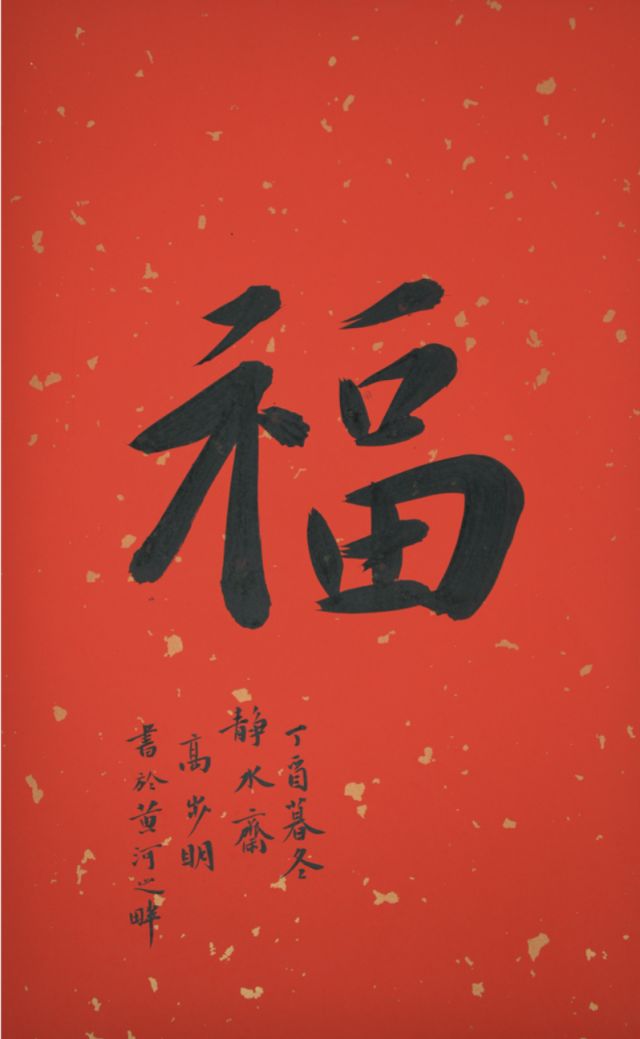 福
丁酉暮冬
静水齋
高步明
書於黄河之畔